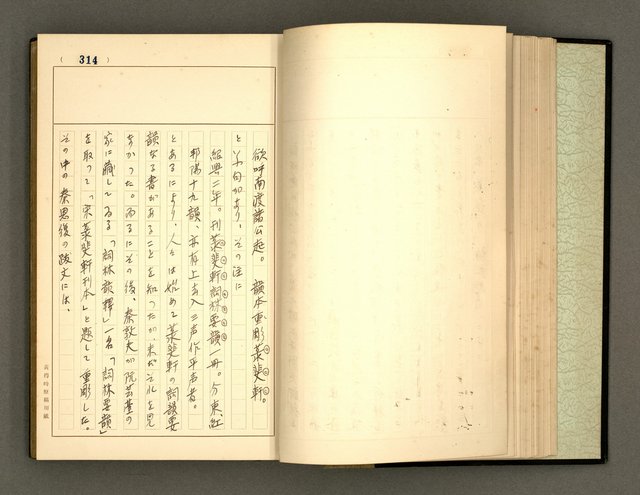 ( 314 )
欲呼南渡諸公起。 韻本重彫菉斐軒。
と云句があり、その注に
紹興二年。刊菉斐軒詞林要韻一冊。分東紅
邦陽十九韻、亦有上去入三声作平者。
とあるにより、人々は始めて菉斐軒の詞韻要
韻なる書があることを知つたが、未だそれを見
なかつた。而るにその後、秦敦夫が阮芸臺の
家に蔵してゐる「詞林韻釋」一名「詞林要韻」
を取つて「宋菉斐軒刊本」と題して重彫した。
その中の秦恩復の跋文には、
黃得時原稿用紙